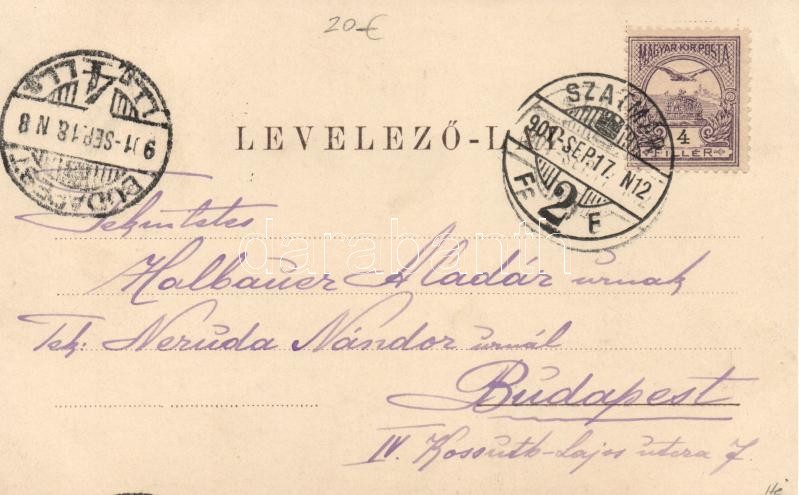 20-€
MAGYAR KIR. POSTA
4
FILLÉR
SZATMÁR
901-SEP.17. N12
2
F
BUDAPEST
901-SEP.18. N8
4
LEVELEZŐ-LAP
Tekintetes
Halbauer Aladár urnak
Tek: Neruda Nándor urnál
Budapest
IV. Kossuth-Lajos utcza 7.
darabanth